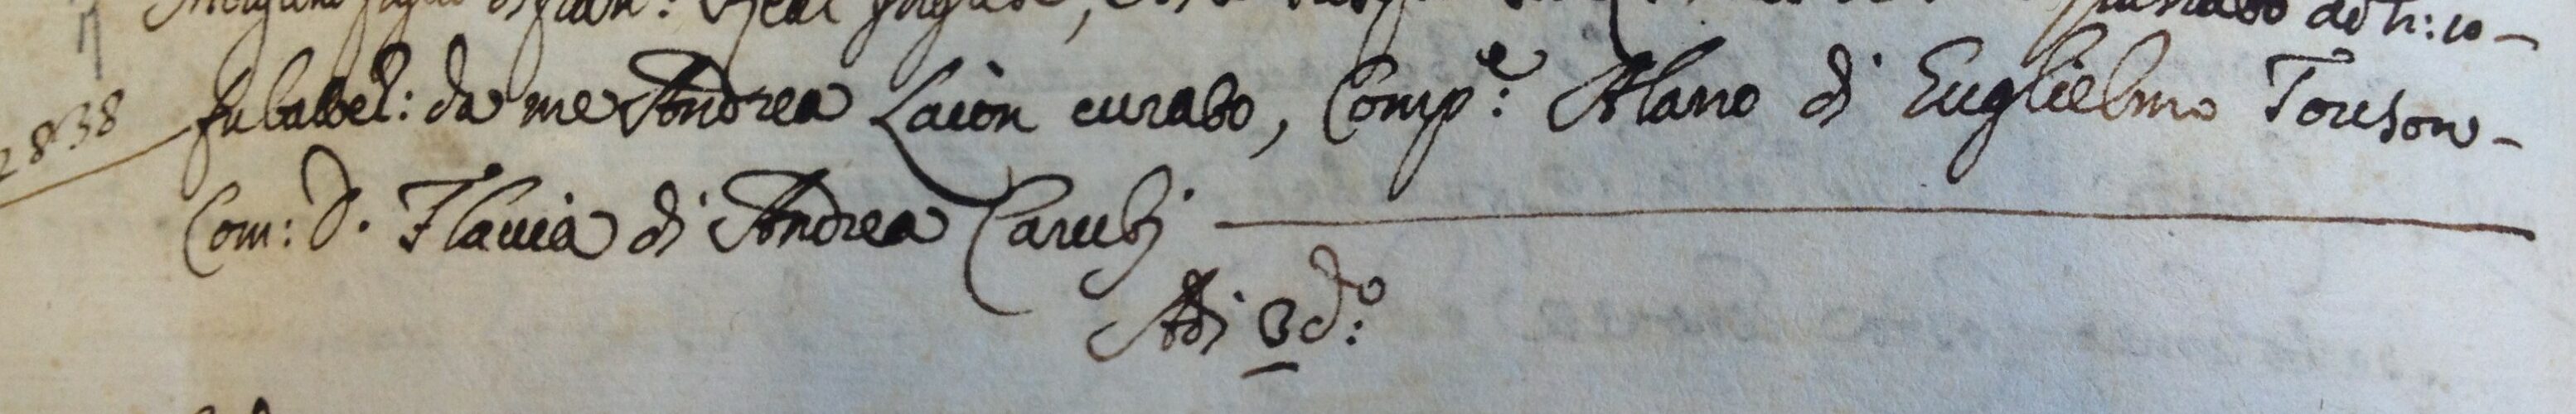 figlio di Fran:
ad h: 10 -
2838 fu battez: da me Andrea Laion curato, Comp:e Alano di Guglielmo Toreson -
Com: D. Flavia di Andrea Carubj
Adi 3 d:o